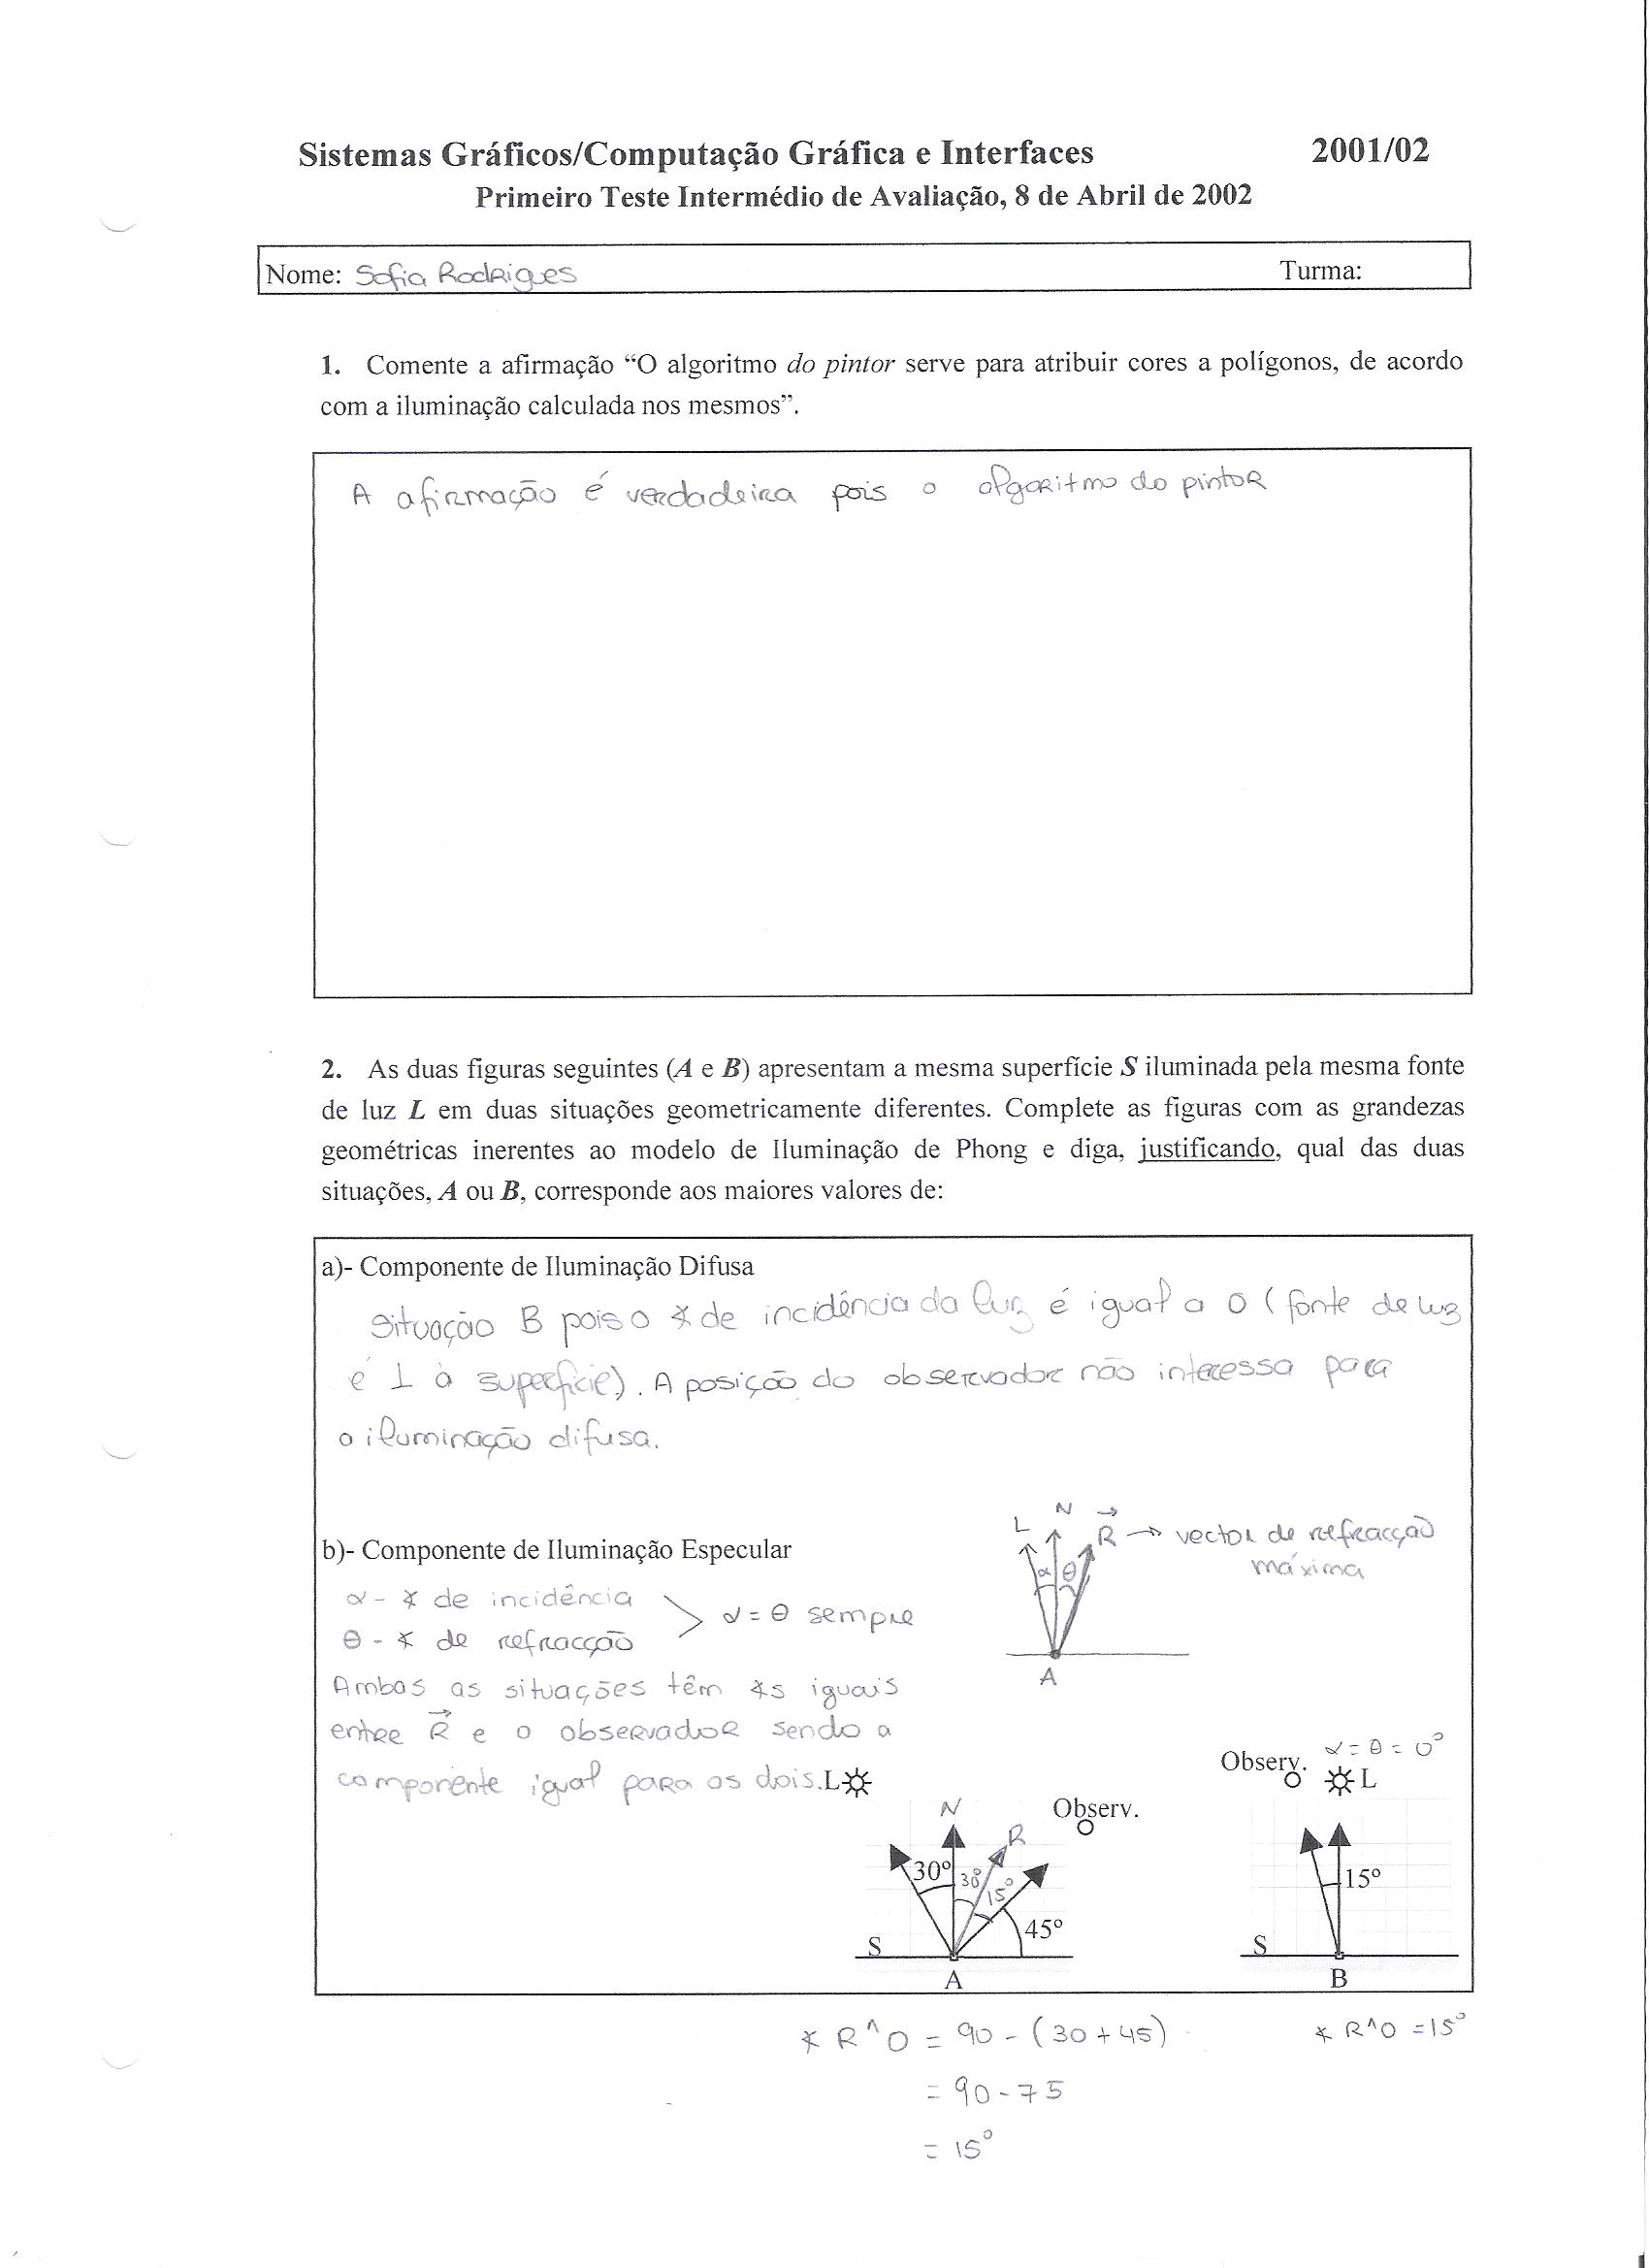 Sistemas Gráficos/Computação Gráfica e Interfaces 2001/02
Primeiro Teste Intermédio de Avaliação, 8 de Abril de 2002
Nome: Sofia Rodrigues Turma:
1. Comente a afirmação “O algoritmo do pintor serve para atribuir cores a polígonos, de acordo
com a iluminação calculada nos mesmos”.
A afirmação é verdadeira pois o algoritmo do pintor
2. As duas figuras seguintes (A e B) apresentam a mesma superfície S iluminada pela mesma fonte
de luz L em duas situações geometricamente diferentes. Complete as figuras com as grandezas
geométricas inerentes ao modelo de Iluminação de Phong e diga, justificando, qual das duas
situações, A ou B, corresponde aos maiores valores de:
a)- Componente de Iluminação Difusa
Situação B pois o ∡ de incidência da luz é igual a 0 (fonte de luz
é ⊥ à superfície). A posição do observador não interessa para
a iluminação difusa.
L N R → vector de refracção
máxima
α θ
A
b)- Componente de Iluminação Especular
α - ∡ de incidência
θ - ∡ de refracção
> α = θ sempre
Ambas as situações têm ∡s iguais
entre R e o observador sendo a
componente igual para os dois.
L
N
Observ.
R
30º 30º 15º
45º
S
A
Observ. α = θ = 0º
L
15º
S
B
∡ R^O = 90 - (30 + 45)
= 90 - 75
= 15º
∡ R^O = 15º